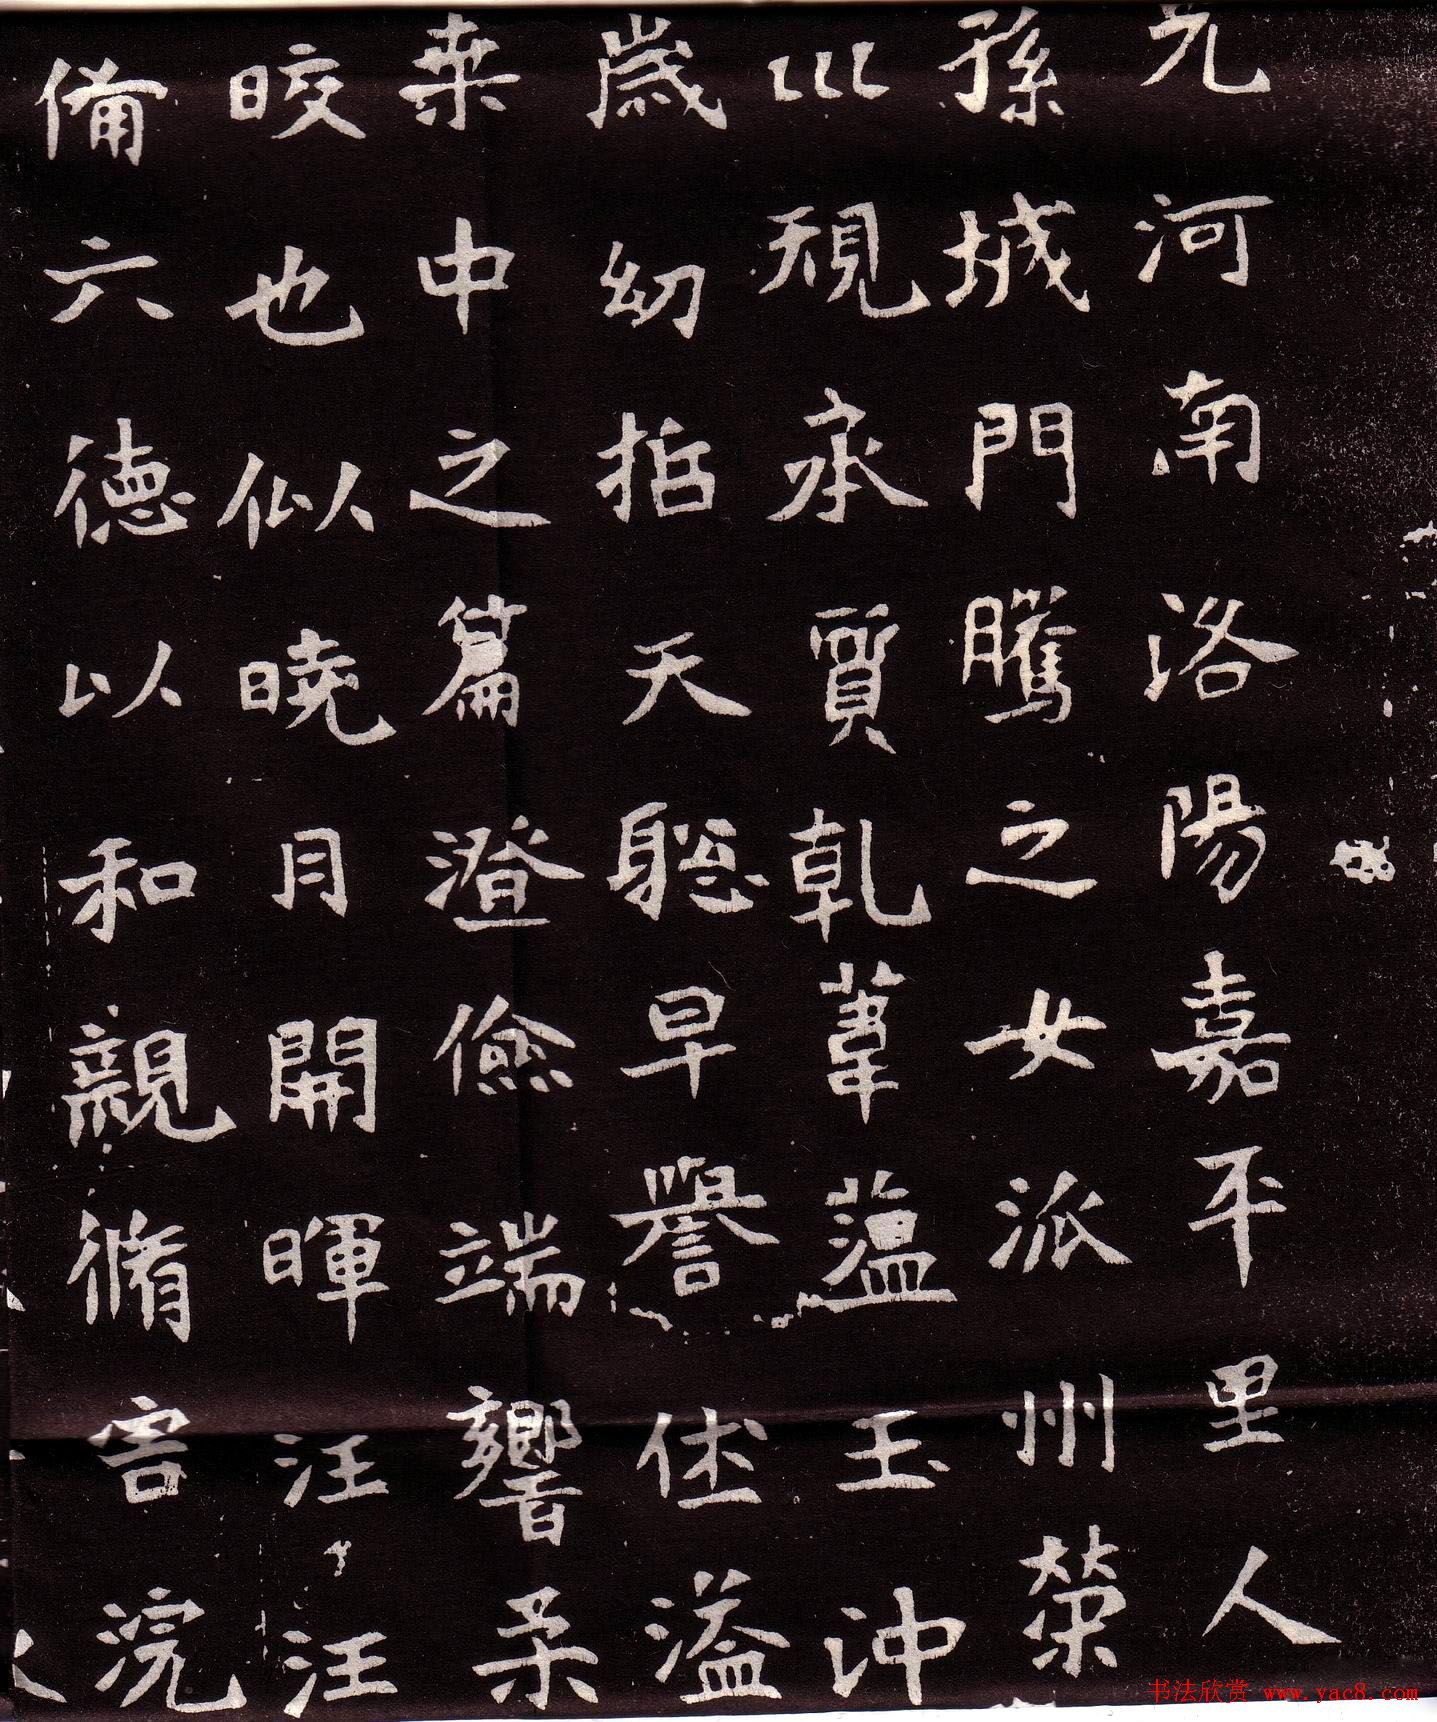 元河南洛陽嘉平里人
孫城門騰之女派州榮
巛規承質乾葦蘊玉沖
歲幼拈天聦早譽伏溢
桒中之篇澄儉端響柔
晈也似曉月開暉汪汪
備六德以和親脩害浣
书法欣赏 www.yac8.com